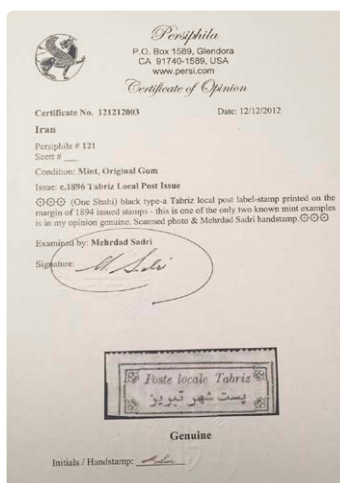 Persiphila
P.O. Box 1589, Glendora
CA 91740-1589, USA
www.persi.com
Certificate of Opinion
Certificate No. 121212003 Date: 12/12/2012
Iran
Persiphila # 121
Scott #
Condition: Mint, Original Gum
Issue: c.1896 Tabriz Local Post Issue
(One Shahi) black type-a Tabriz local post label-stamp printed on the
margin of 1894 issued stamps - this is one of the only two known mint examples
is in my opinion genuine. Scanned photo & Mehrdad Sadri handstamp.
Examined by: Mehrdad Sadri
Signature: M. Sadri
Poste locale Tabriz
پست شهر تبریز
Genuine
Initials / Handstamp: